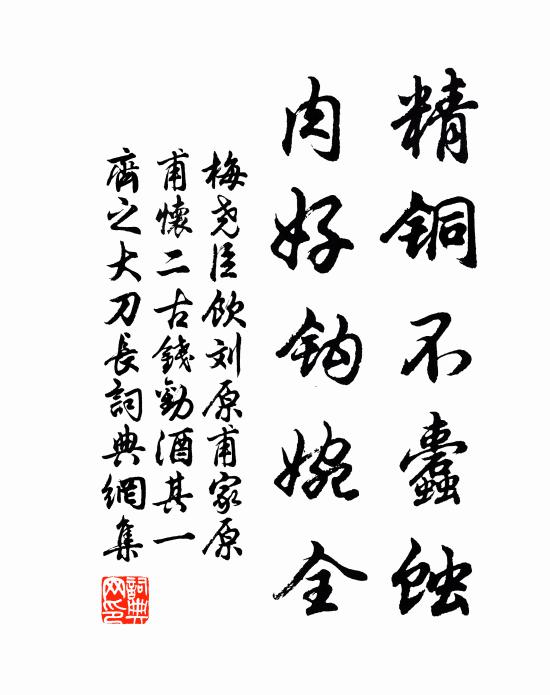 精銅不蠹蝕
肉好鈎婉全
梅尧臣飲刘原甫家原
甫懷二古錢勸酒其一
齊之大刀長詞典網集
詞典網印